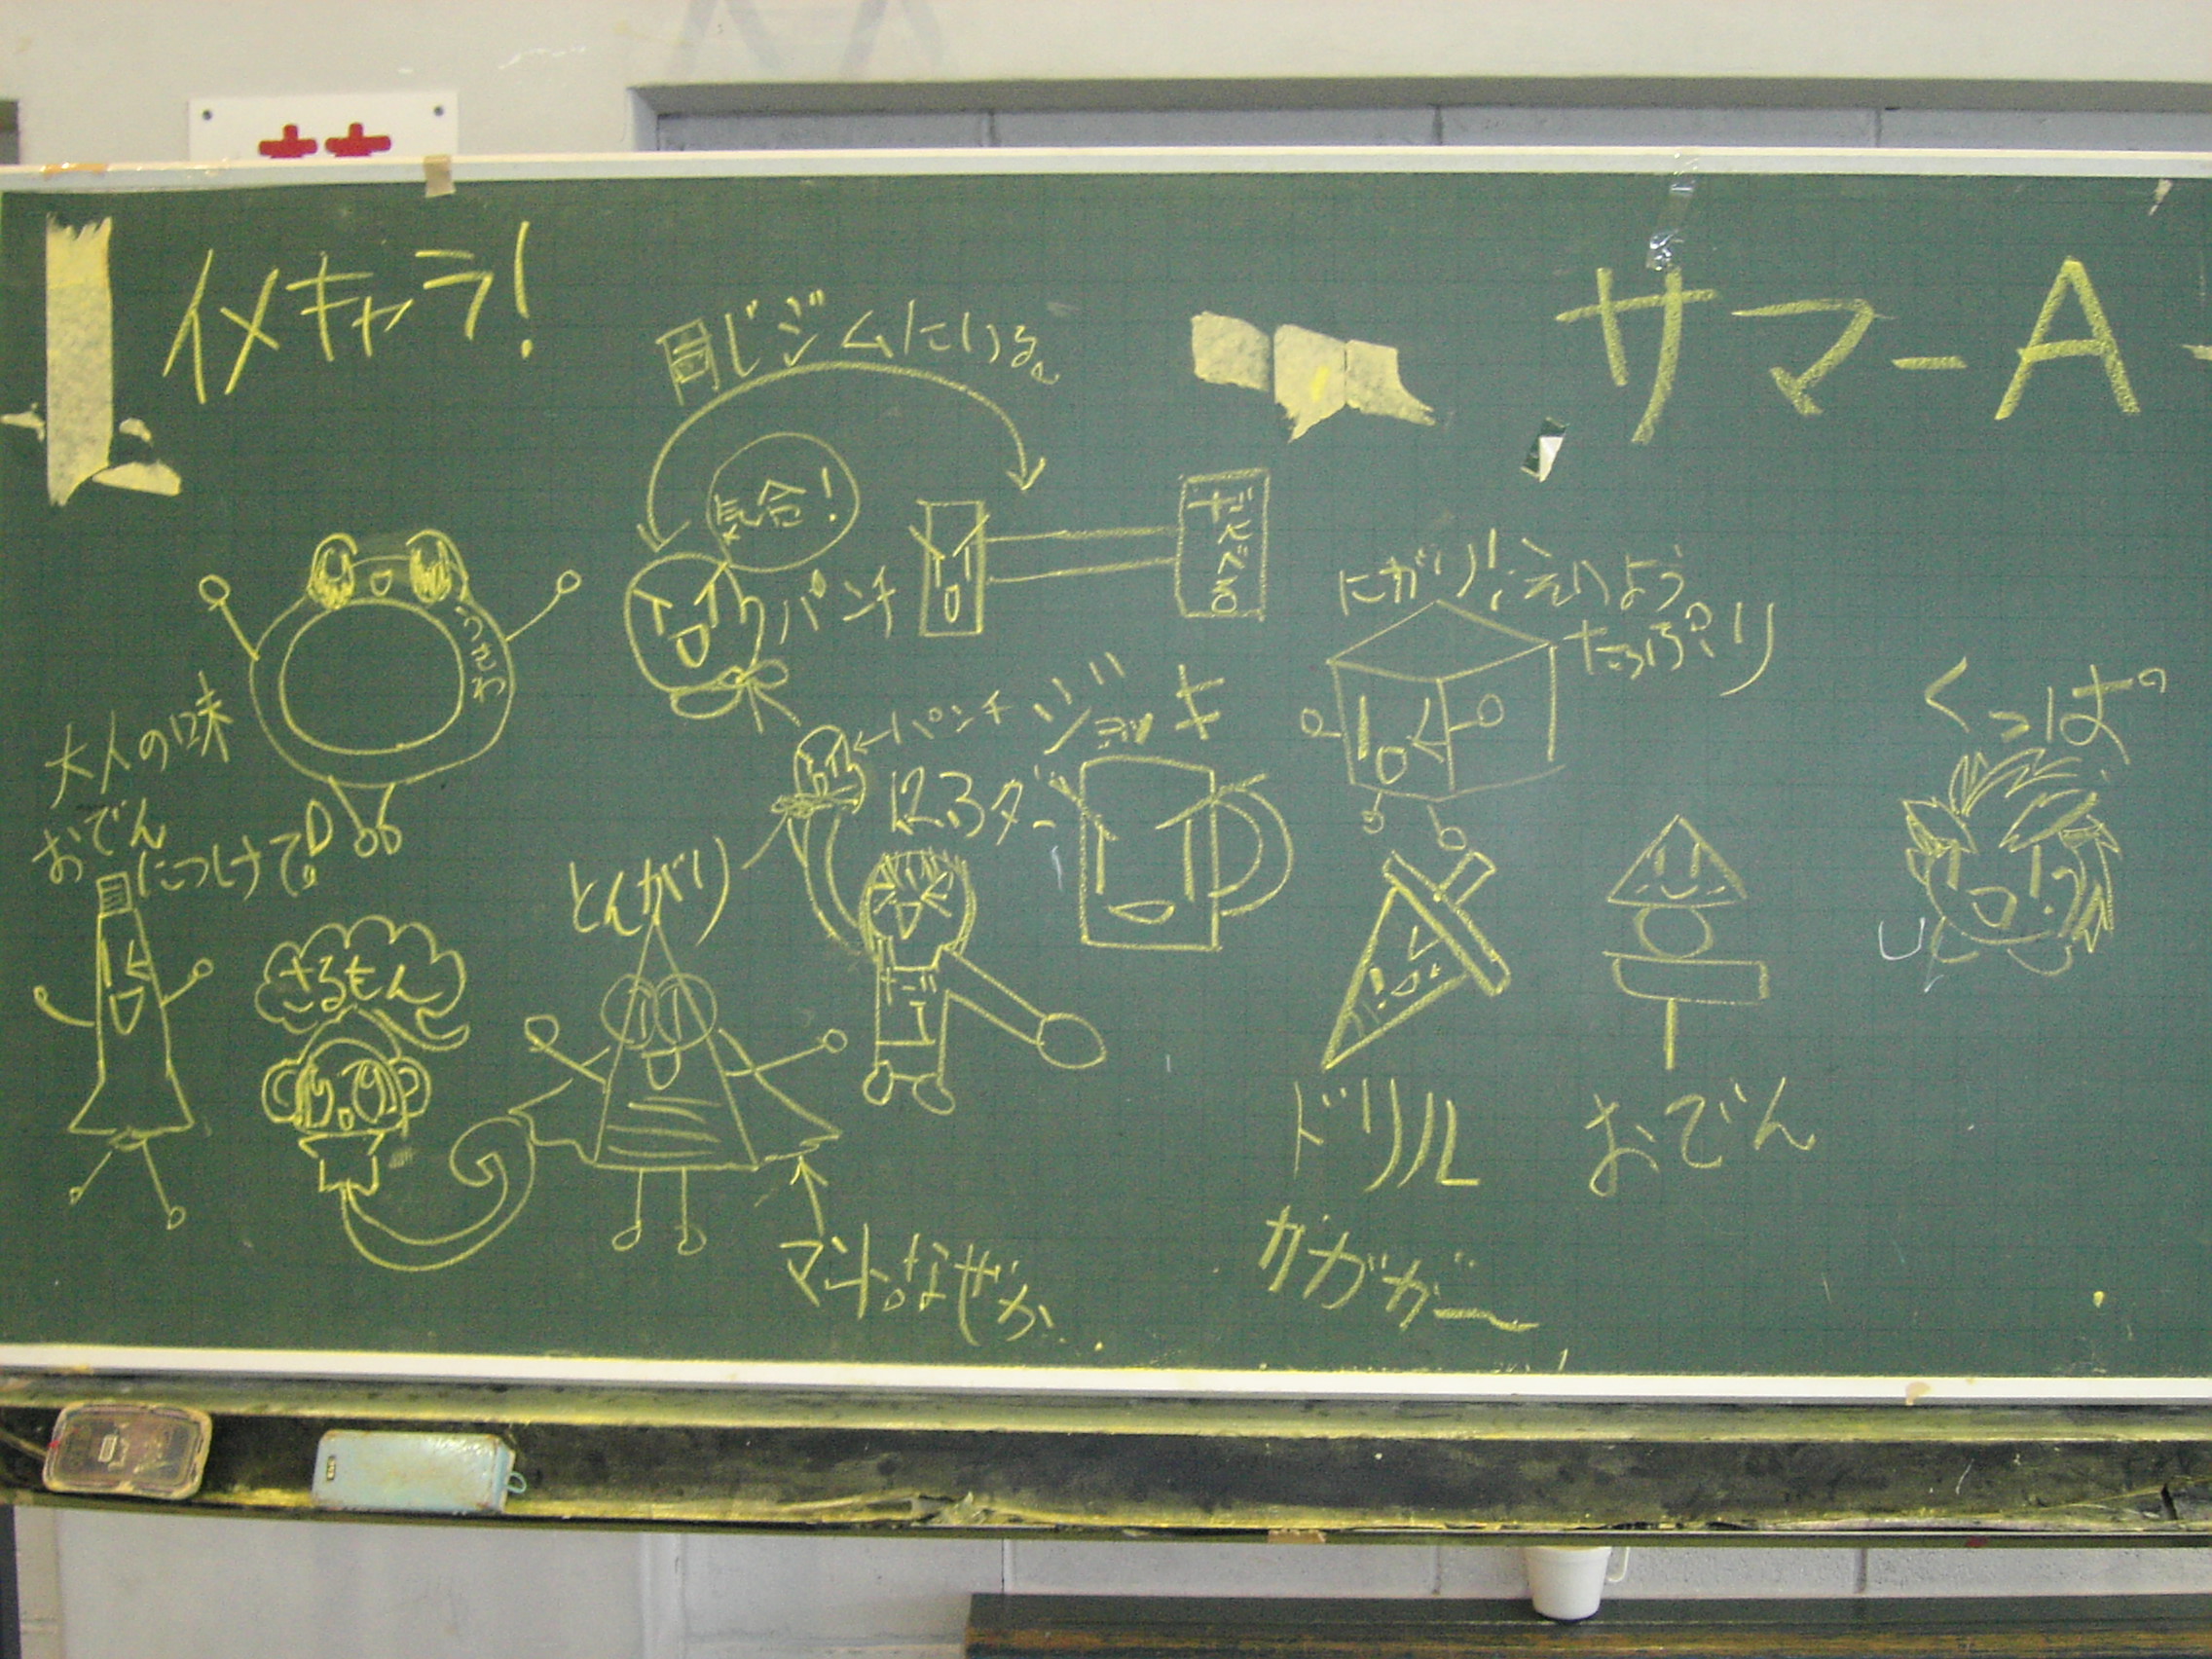 イメキャラ!
サマーA
同じジムにいる。
気合!
パンチ
だんべる
にがり!えいよう
たっぷり
くっぱ
大人の味
おでん
につけて!
うきわ
←パンチ
ジョッキ
とんがり
さるもん
マント。なぜか..
ドリル
おでん
ガガガー